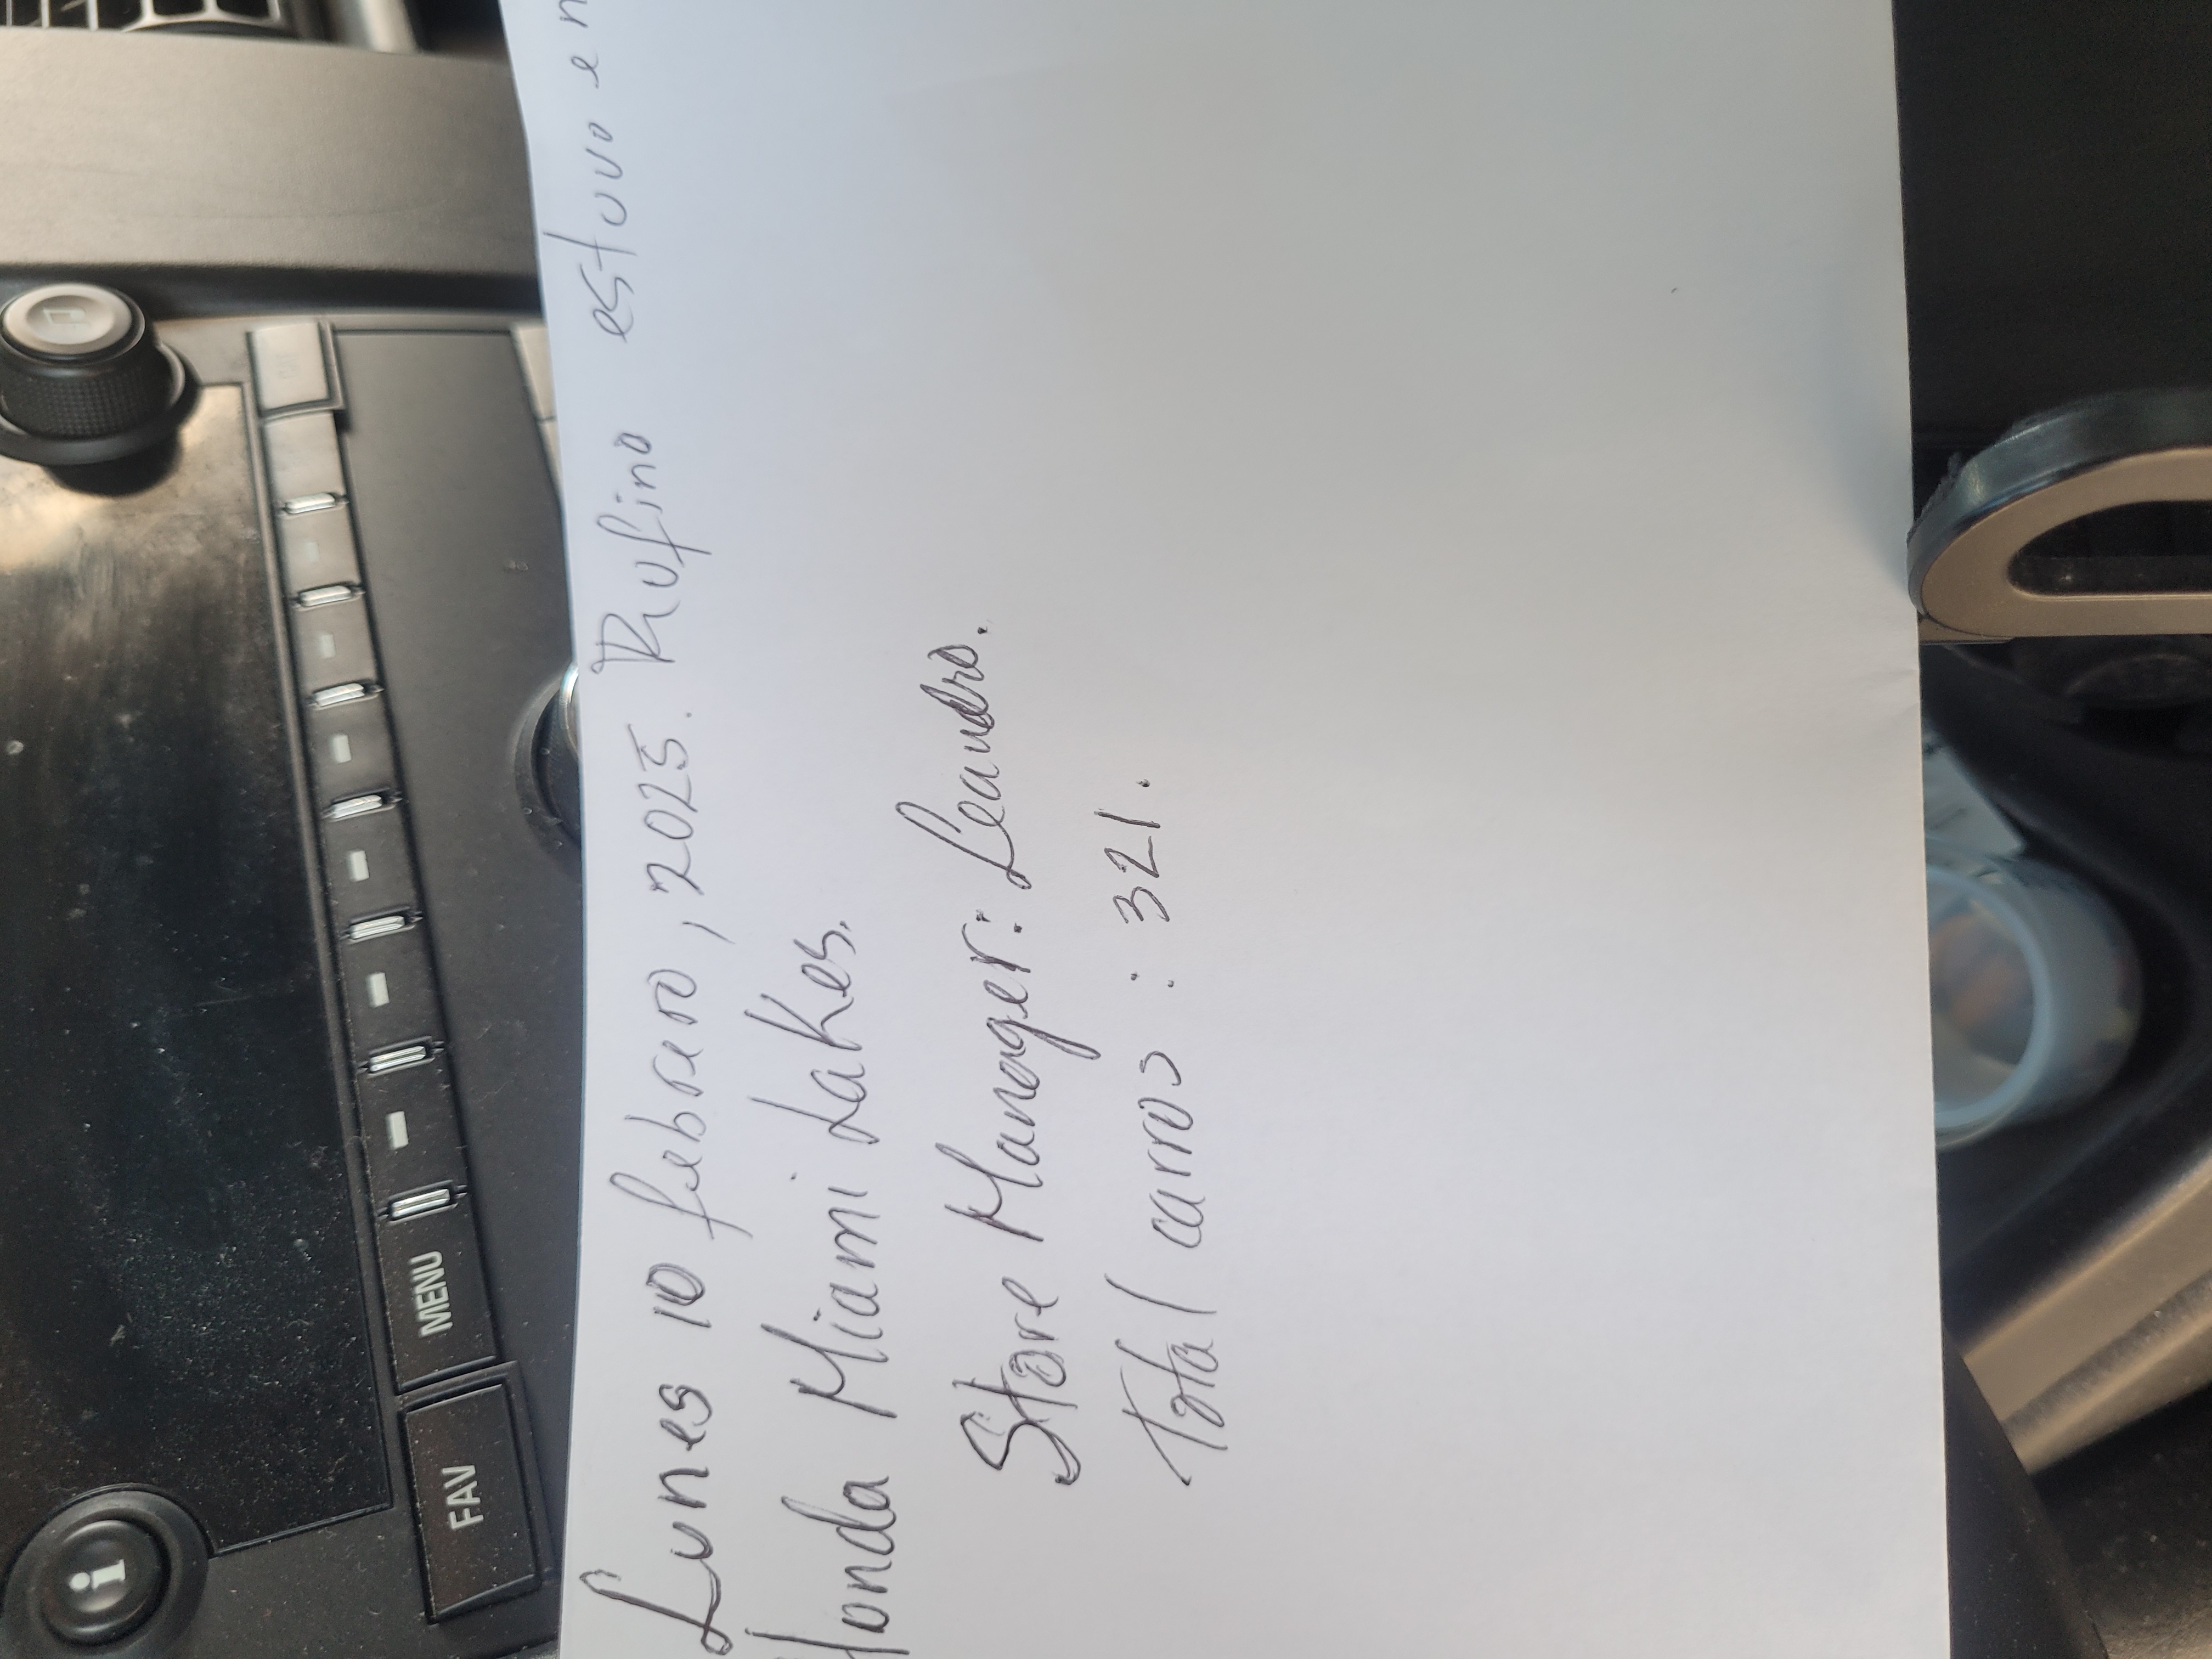 Lunes 10 febrero, 2025. Rufino estuvo en
Honda Miami Lakes.
Store Manager: Leandro.
Total carros : 321.
MENU
FAV
i